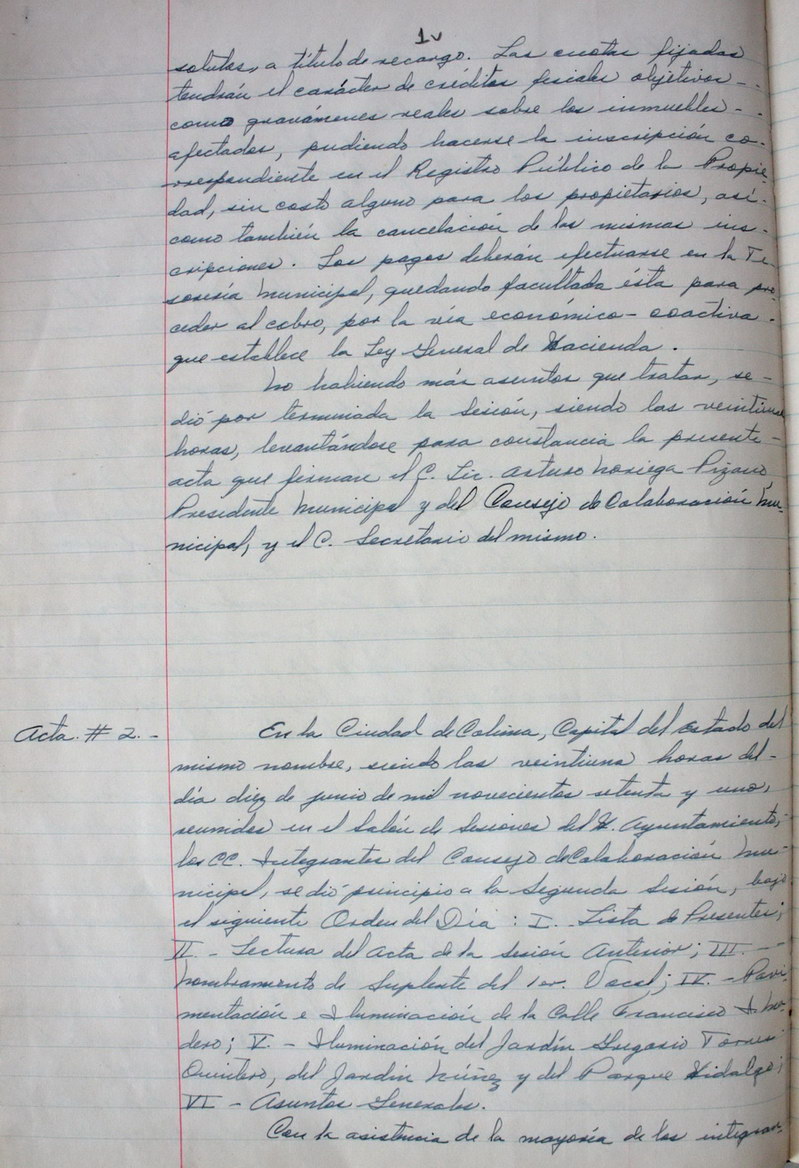 1v
solutas, a título de recargo. Las cuotas fijadas
tendrán el carácter de créditos fiscales objetivos -
como gravámenes reales sobre los inmuebles -
afectados, pudiendo hacerse la inscripción co-
rrespondiente en el Registro Público de la Propie-
dad, sin costo alguno para los propietarios, así-
como también la cancelación de las mismas ins-
cripciones. Los pagos deberán efectuarse en la Te
sorería Municipal, quedando facultada ésta para pro
ceder al cobro, por la vía económico-coactiva -
que establece la Ley General de Hacienda.
No habiendo más asuntos que tratar, se -
dió por terminada la Sesión, siendo las veintiuna
horas, levantándose para constancia la presente -
acta que firman el C. Lic. Arturo Noriega Pizano,
Presidente Municipal y del Consejo de Colaboración Mu-
nicipal, y el C. Secretario del mismo.
Acta. # 2. -
En la Ciudad de Colima, Capital del Estado del
mismo nombre, siendo las veintiuna horas del -
día diez de junio de mil novecientos setenta y uno,
reunidos en el Salón de Sesiones del H. Ayuntamiento,-
los CC. Integrantes del Consejo de Colaboración Mu-
nicipal, se dió principio a la Segunda Sesión, bajo
el siguiente Orden del Día : I.- Lista de Presentes;
II. - Lectura del Acta de la Sesión Anterior; III. - -
Nombramiento de Suplente del 1er. Vocal; IV. - Pavi-
mentación e Iluminación de la Calle Francisco I. Ma-
dero; V. - Iluminación del Jardín Gregorio Torres
Quintero, del Jardín Núñez y del Parque Hidalgo;
VI - Asuntos Generales.
Con la asistencia de la mayoría de los integran-